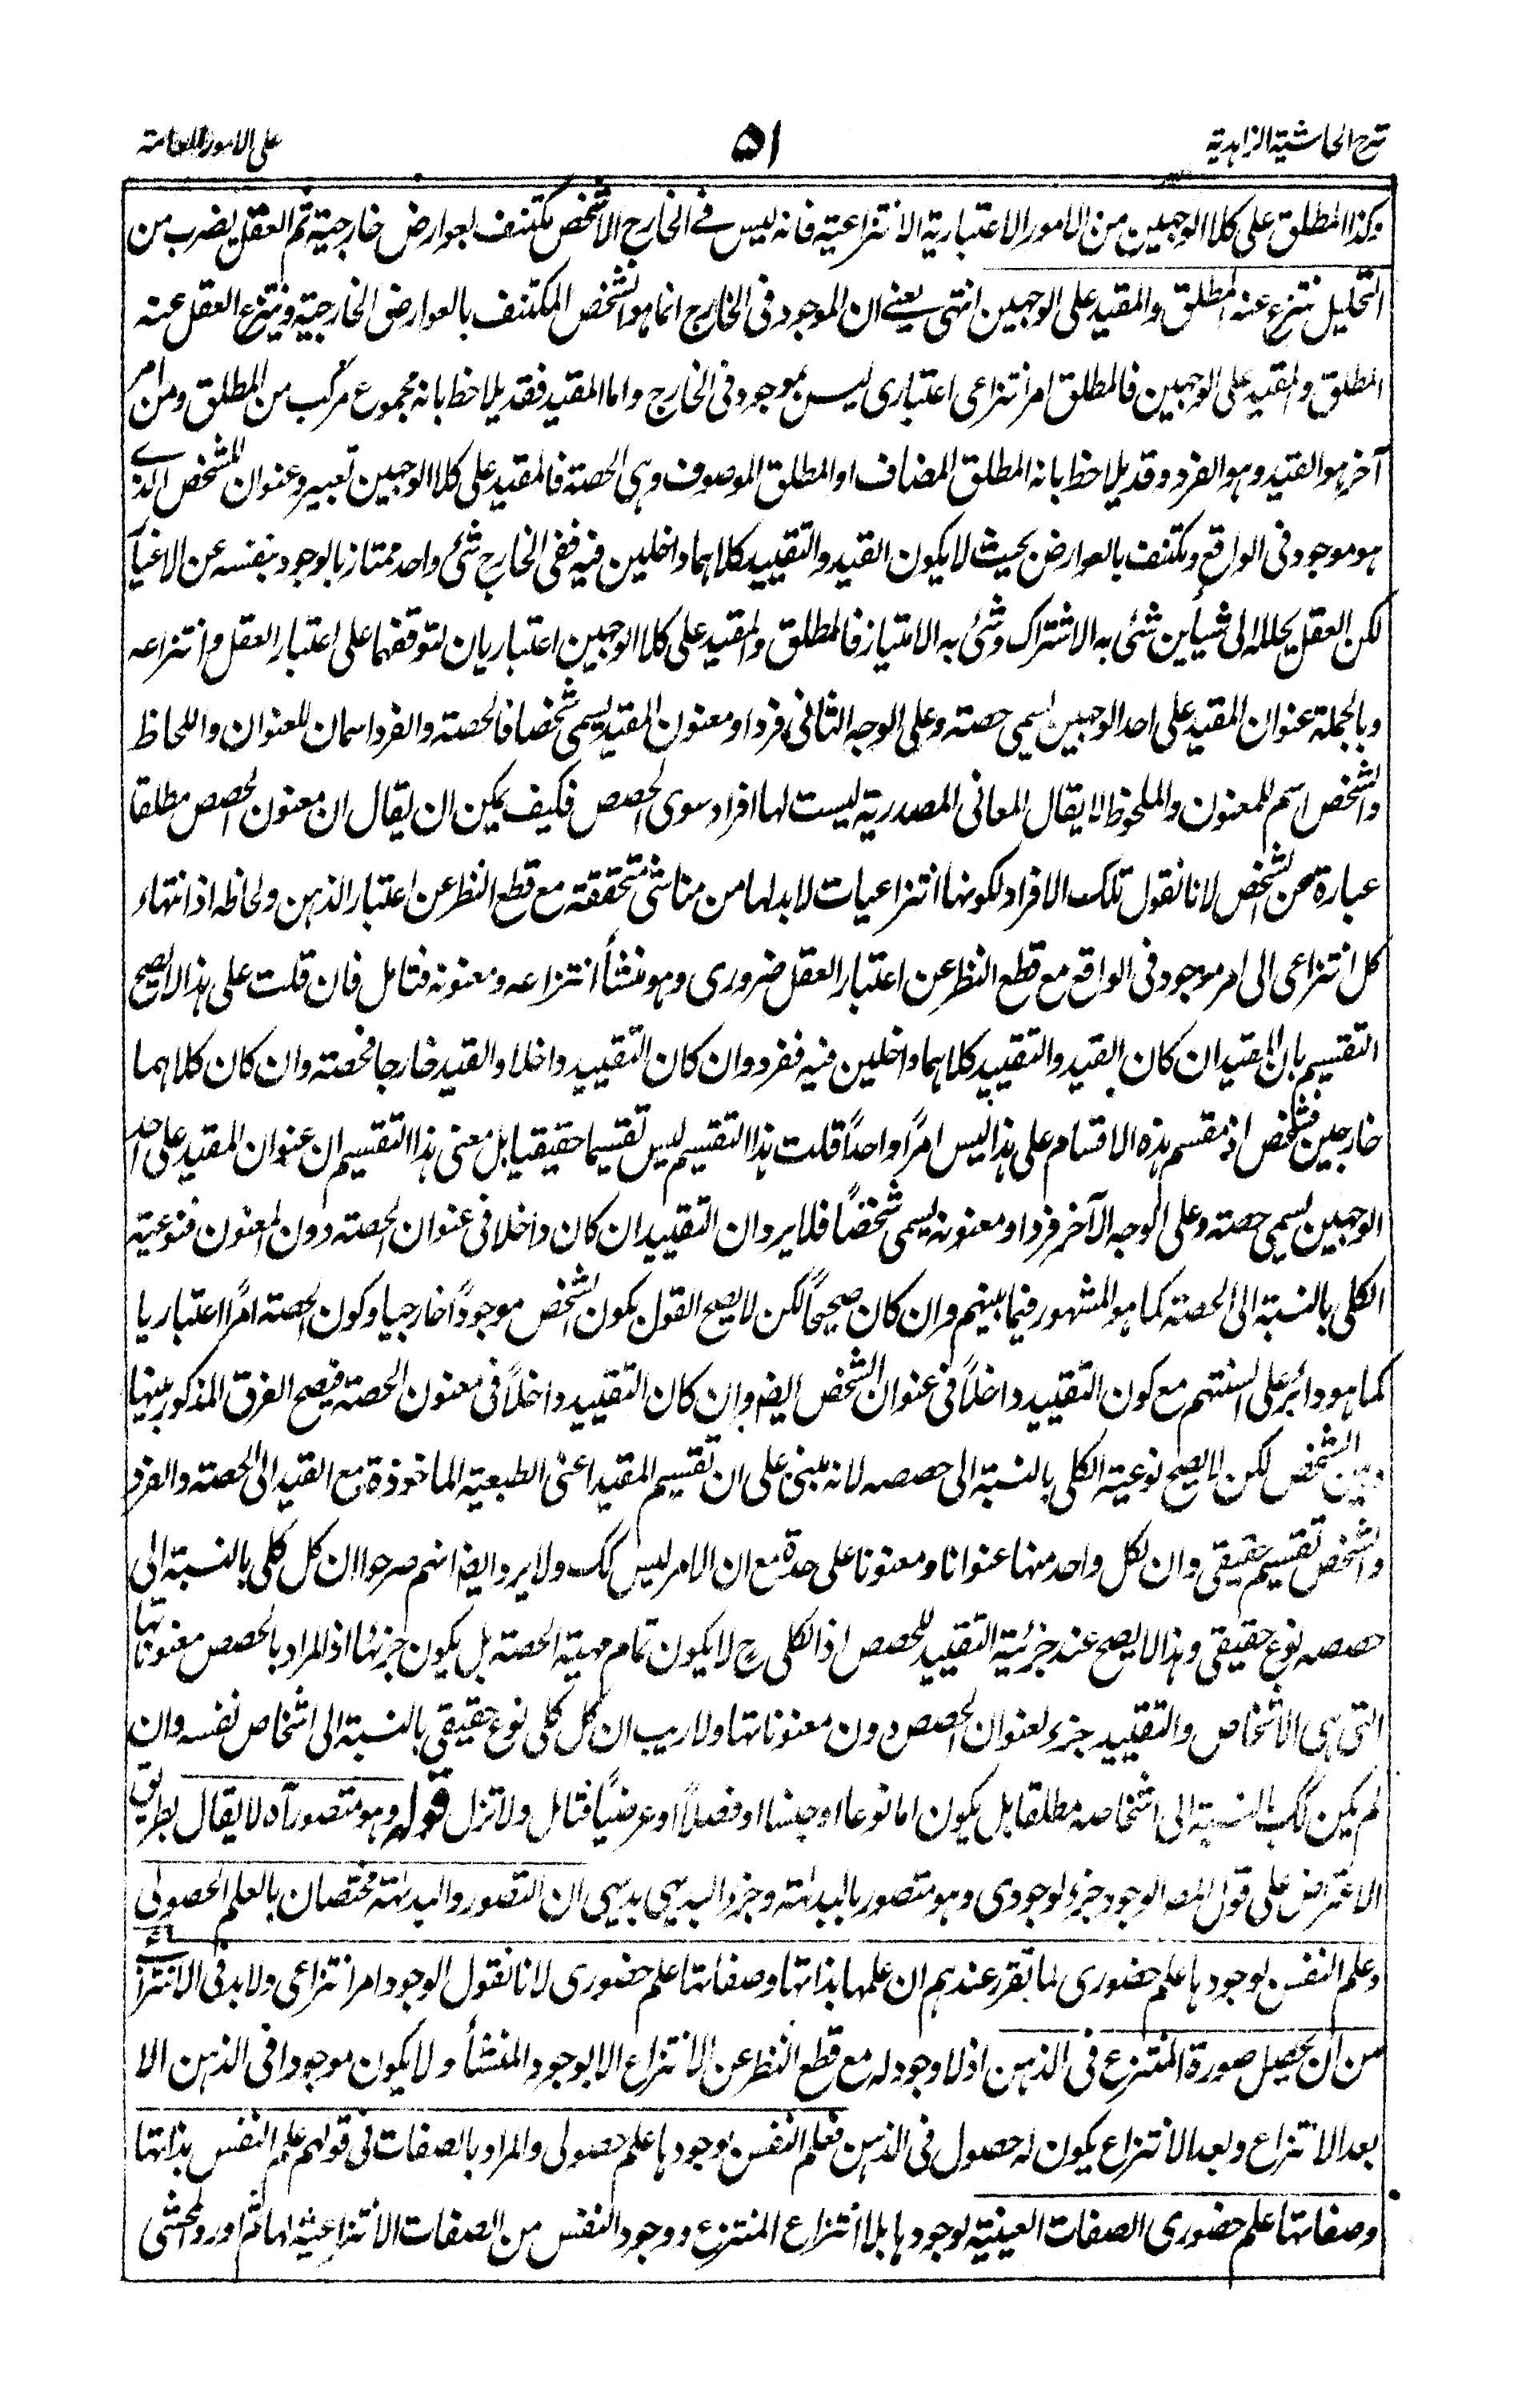 شرح الحاشية الزاهدية
٥١
على الامور العامة
وكذا المطلق على كلا الوجهين من الامور الاعتبارية الانتزاعية فانه ليس فى الخارج الا شخص مكتنف بعوارض خارجية ثم العقل بضرب من
التحليل ينتزع عنه المطلق والمقيد على الوجهين انتهى يعنى ان الموجود فى الخارج انما هو الشخص المكتنف بالعوارض الخارجية وينتزع العقل عنه
المطلق والمقيد على الوجهين فالمطلق امر انتزاعى اعتبارى ليس بموجود فى الخارج واما المقيد فقد يلاحظ بانه مجموع مركب من المطلق ومن امر
آخر هو القيد وهو الفرد وقد يلاحظ بانه المطلق المضاف او المطلق الموصوف وهى الحصة فالمقيد على كلا الوجهين تعبير وعنوان للشخص الذى
هو موجود فى الواقع ومكتنف بالعوارض بحيث لا يكون القيد والتقييد كلاهما داخلين فيه ففى الخارج شئ واحد ممتاز بالوجود بنفسه عن الاغيار
لكن العقل يحلله الى شيأين شئ به الاشتراك وشئ به الامتياز فالمطلق والمقيد على كلا الوجهين اعتباريان لتوقفهما على اعتبار العقل وانتزاعه
وبالجملة عنوان المقيد على احد الوجهين يسمى حصة وعلى الوجه الثانى فردا ومعنون المقيد يسمى شخصا فالحصة والفرد اسمان للعنوان واللحاظ
والشخص اسم للمعنون والملحوظ لا يقال المعانى المصدرية ليست لها افراد سوى الحصص فكيف يمكن ان يقال ان معنون الحصص مطلقا
عبارة عن الشخص لانا نقول تلك الافراد لكونها انتزاعيات لا بد لها من مناشى متحققة مع قطع النظر عن اعتبار الذهن ولحاظه اذ انتهاء
كل انتزاعى الى امر موجود فى الواقع مع قطع النظر عن اعتبار العقل ضرورى وهو منشأ انتزاعه ومعنونه فتامل فان قلت على هذا لا يصح
التقسيم بان المقيد ان كان القيد والتقييد كلاهما داخلين فيه ففرد وان كان التقييد داخلا والقيد خارجا فحصة وان كان كلاهما
خارجين فشخص اذ مقسم هذه الاقسام على هذا ليس امرًا واحدًا قلت هذا التقسيم ليس تقسيما حقيقيا بل معنى هذا التقسيم ان عنوان المقيد على احد
الوجهين يسمى حصة وعلى الوجه الآخر فردا ومعنونه يسمى شخصًا فلا يرد ان التقييد ان كان داخلا فى عنوان الحصة دون المعنون فنوعية
الكلى بالنسبة الى الحصة كما هو المشهور فيما بينهم وان كان صحيحًا لكن لا يصح القول بكون الشخص موجودًا خارجيا وكون الحصة امرًا اعتباريا
كما هو دائر على السنتهم مع كون التقييد داخلًا فى عنوان الشخص ايضا وان كان التقييد داخلًا فى معنون الحصة فيصح الفرق المذكور بينها
وبين الشخص لكن لا يصح نوعية الكلى بالنسبة الى حصصه لانه مبنى على ان تقسيم المقيد اعنى الطبيعة الماخوذة مع القيد الى الحصة والفرد
والشخص تقسيم حقيقى وان لكل واحد منها عنوانا ومعنونا على حدة مع ان الامر ليس كك ولا يرد ايضا انهم صرحوا ان كل كلى بالنسبة الى
حصصه نوع حقيقى وهذا لا يصح عند جزئية التقييد للحصص اذ الكلى ح لا يكون تمام مهية الحصة بل يكون جزئها اذ المراد بالحصص معنوناتها
التى هى الاشخاص والتقييد جزء لعنوان الحصص دون معنوناتها ولا ريب ان كل كلى نوع حقيقى بالنسبة الى اشخاص نفسه وان
لم يكن كك بالنسبة الى اشخاصه مطلقا بل يكون اما نوعا او جنسا او فصلًا او عرضيًا فتامل ولا تزل قوله وهو متصور آه لا يقال بطريق
الاعتراض على قول المصـ الوجود جزء لوجودى وهو متصور بالبداهة وجزء البديهى بديهى ان التصور والبداهة مختصان بالعلم الحصولى
وعلم النفس بوجودها علم حضورى لما تقرر عندهم ان علمها بذاتها وصفاتها علم حضورى لانا نقول الوجود امر انتزاعى ولا بد فى الانتزاع
من ان يحصل صورة المنتزع فى الذهن اذ لا وجود له مع قطع النظر عن الانتزاع الا بوجود المنشأ ولا يكون موجودا فى الذهن الا
بعد الانتزاع وبعد الانتزاع يكون له حصول فى الذهن فعلم النفس بوجودها علم حصولى والمراد بالصفات فى قولهم علم النفس بذاتها
وصفاتها علم حضورى الصفات العينية لوجودها بلا انتزاع المنتزع ووجود النفس من الصفات الانتزاعية لها ثم اورد المحشى